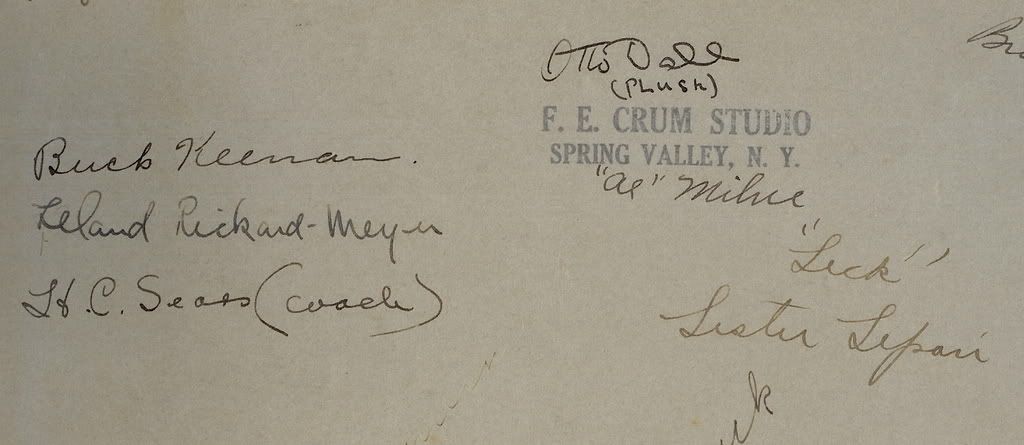 Otto Dall
(PLUSH)
F. E. CRUM STUDIO
SPRING VALLEY, N. Y.
"Al" Milne
Buck Keenan.
Leland Rickard-Meyer
H. C. Sears (coach)
"Leck"
Lester Lepori